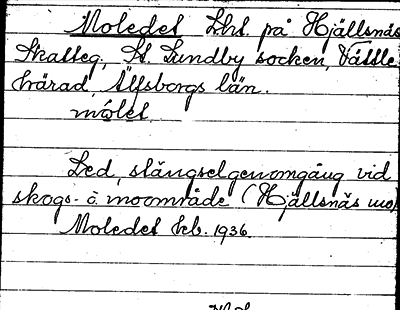 Moledet Lht. på Hjällsnäs
Skatteg, St. Lundby socken, Vättle
härad, Älfsborgs län.
mólet.
Led, stängselgenomgång vid
skogs- o moområde (Hjällsnäs mo)
Moledet Ek. 1936